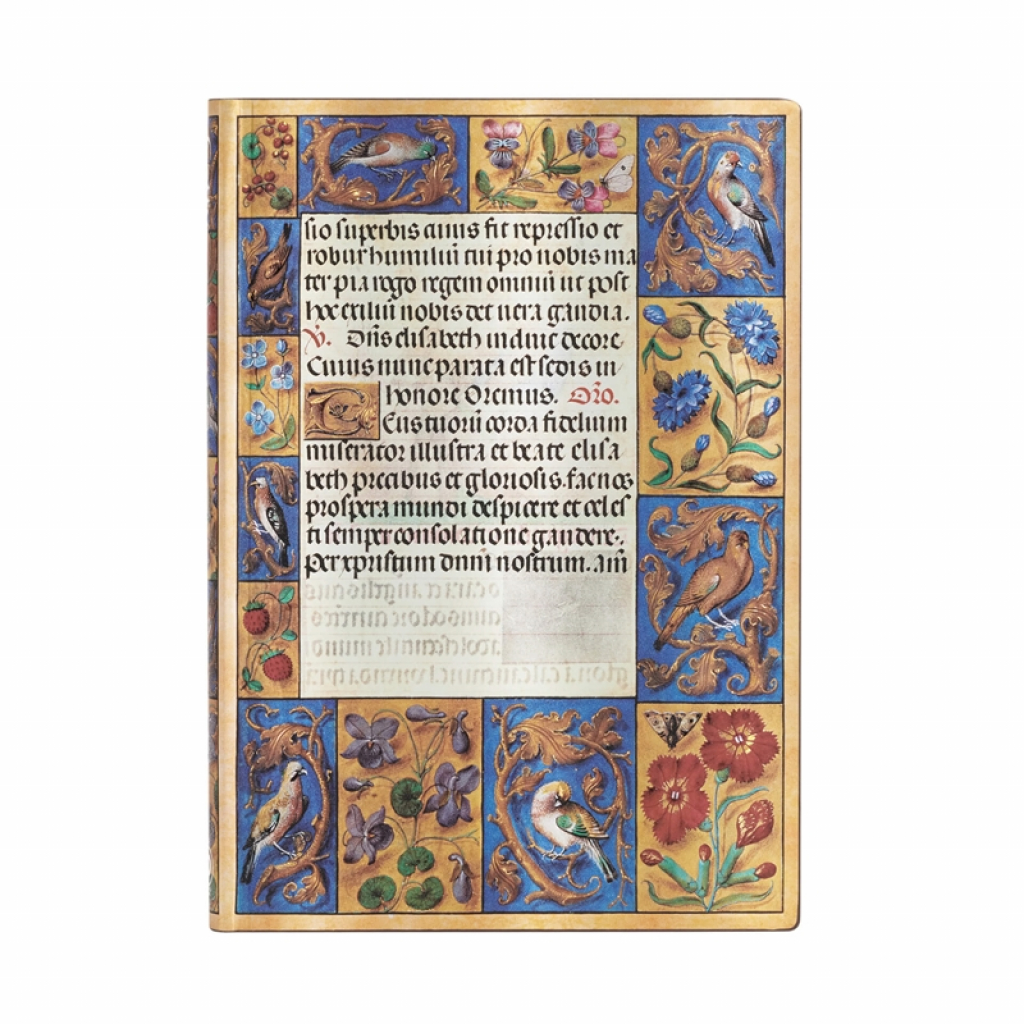 sio superbis cuius fit repressio et
robur humiliū tui pro nobis ma
ter pia rogo regem omniū ut post
hoc exiliū nobis det uera gaudia.
V. Ora elisabeth indiuic decore
Cuius nunc parata est sedis in
honore Oremus. Oro.
Eus tuorū corda fidelium
miserator illustra et beate elisa
beth precibus et gloriosis. fac nos
prospera mundi despicere et celes
ti semper consolatione gaudere.
Per xpristum dnm nostrum. Am